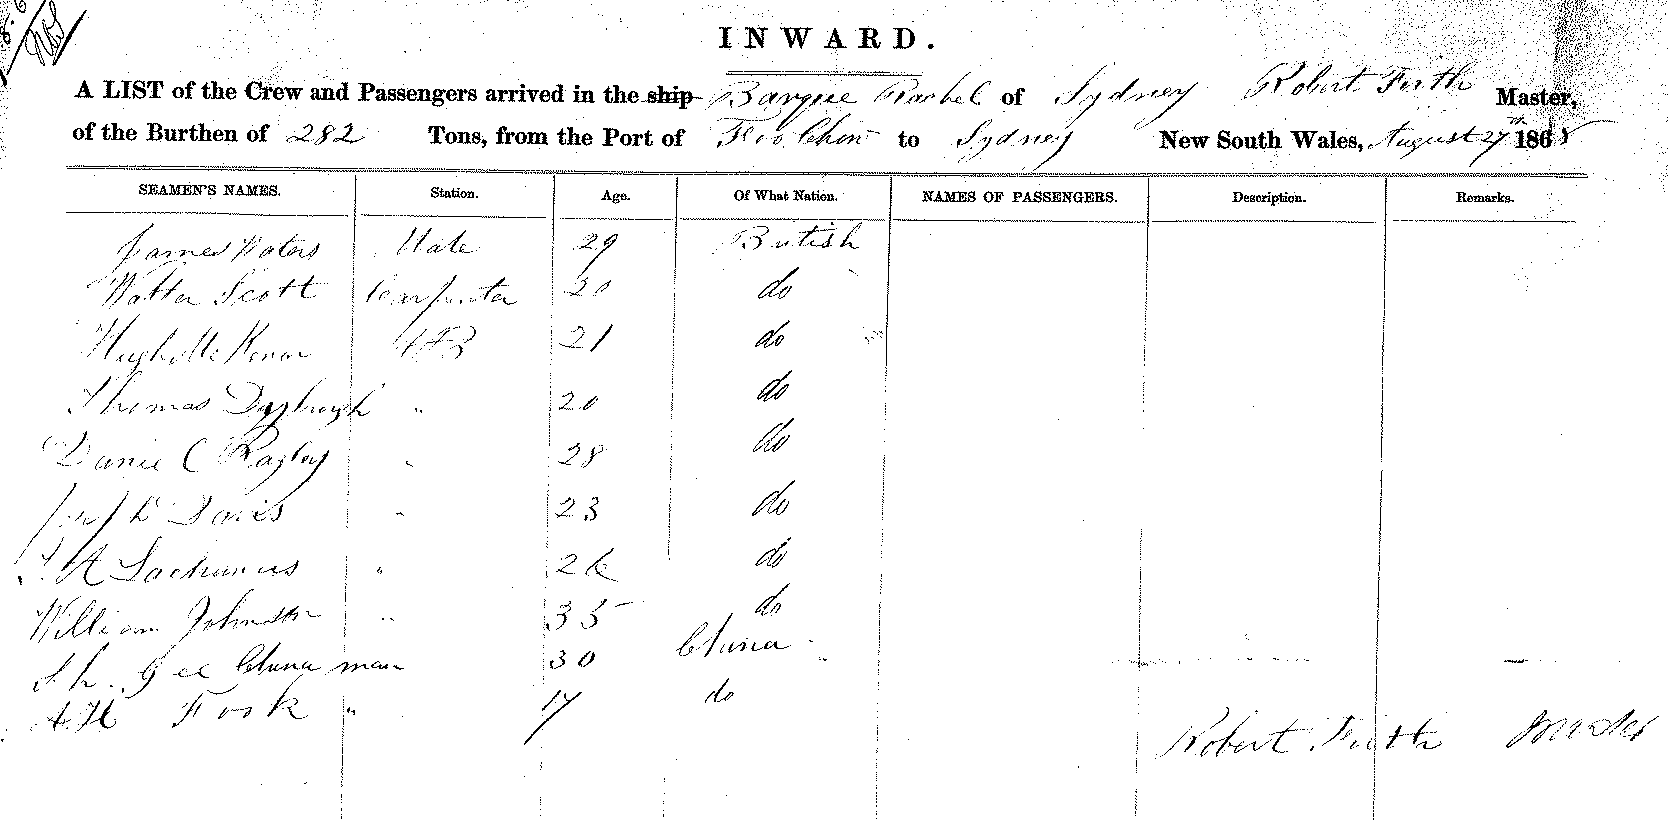 INWARD.
A LIST of the Crew and Passengers arrived in the ship Barque Rachel of Sydney Robert Firth Master,
of the Burthen of 282 Tons, from the Port of Foo Chow to Sydney New South Wales, August 27th 1868
SEAMEN'S NAMES. Station. Age. Of What Nation. NAMES OF PASSENGERS. Description. Remarks.
James Waters Mate 29 British
Walter Scott Carpenter 20 do
Hugh Mc 21 do
Thomas " 20 do
28 do
Davis " 23 do
" 26 do
William Johnston " 35 do
Gee China man 30 China
Ah Fook " 17 do
Robert Firth Master